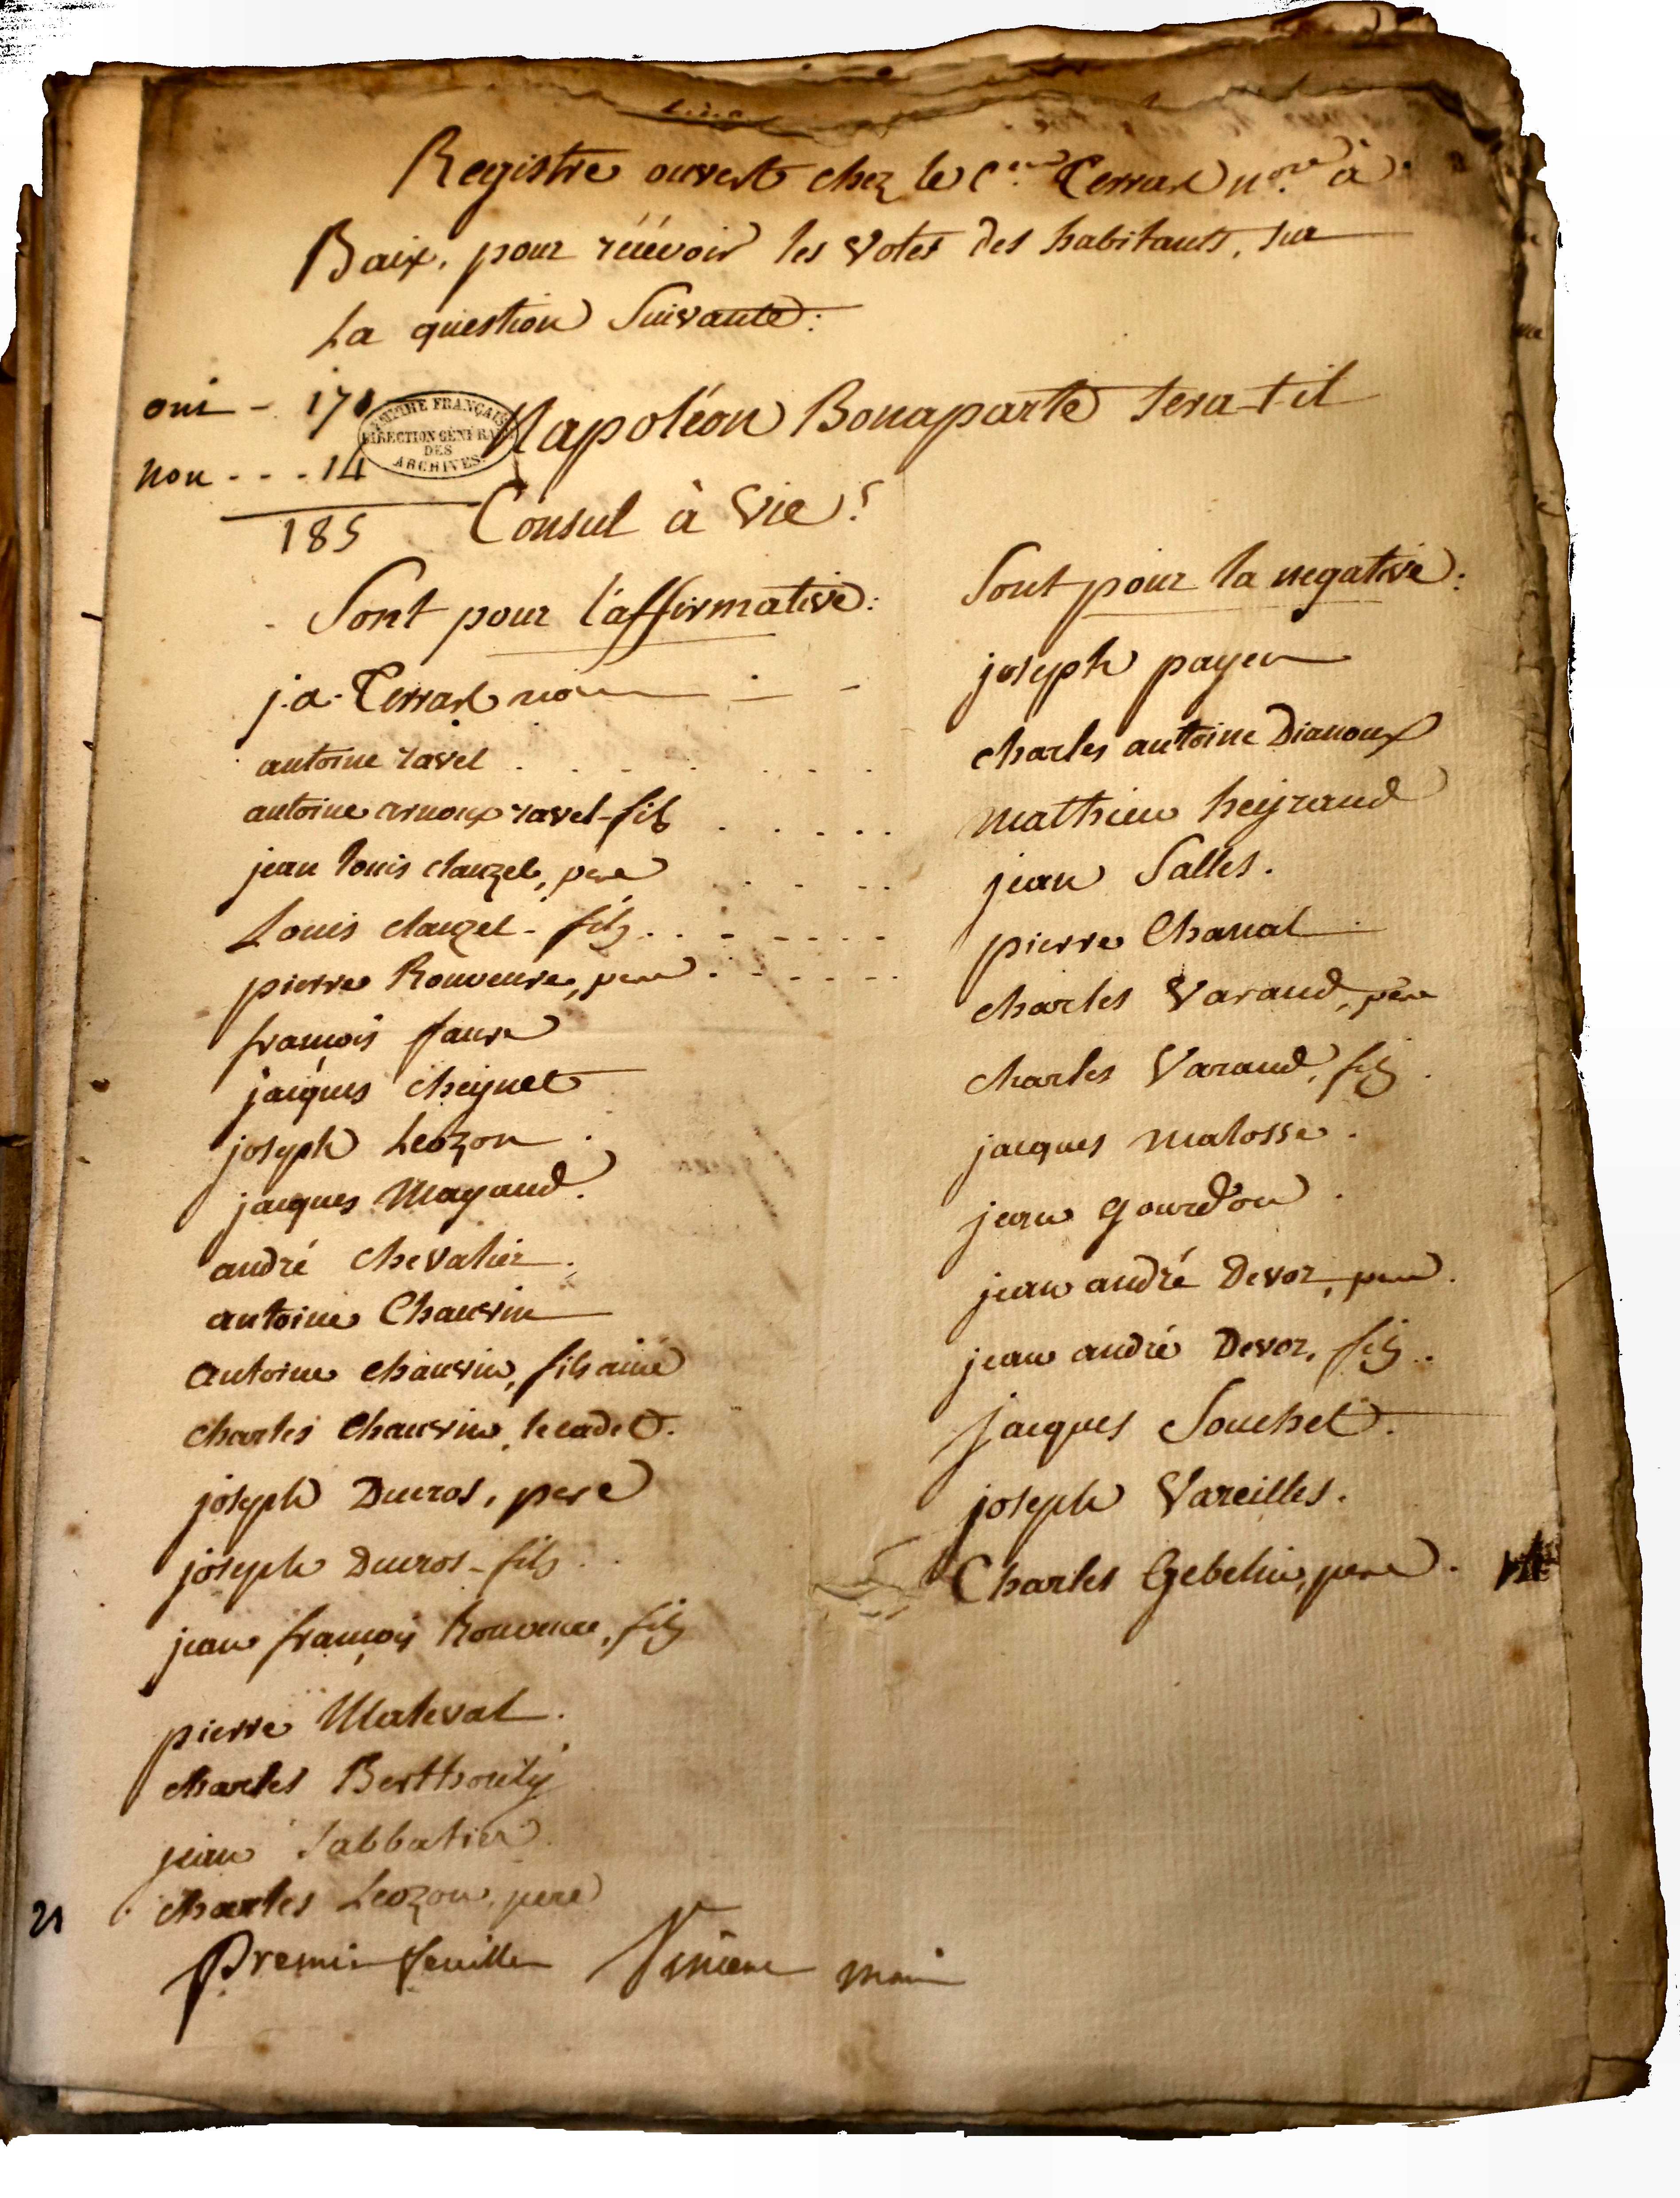 Registre ouvert chez le C.en Terrasl n.re à
Baix, pour récévoir les votes des habitants, sur
La question Suivante:
oui - 171
non - - - 14
185
EMPIRE FRANÇAIS
DIRECTION GÉNÉRALE
DES
ARCHIVES
Napoléon Bonaparte sera-t-il
Consul à vie?
Sont pour l'affirmative:
j. a. nore
antoine ravel
antoine arnoux ravel-fils
jean louis clauzel, pere
Louis clauzel - fils
pierre Rouveure, pere
françois faure
jacques cheynet
joseph Leozon
jacques Mayaud.
andré chevalier
antoine Chauvin
antoine chauvin, fils ainé
charles Chauvin, le cadet.
joseph Ducros, pere
joseph Ducros - fils
jean françois Rouveure, fils
pierre Maleval.
charles Berthouly
jean Sabbatier
charles Leozon, pere
21
Premier feuillet maire
Sont pour la negative:
joseph payen
charles antoine Dianoux
mathieu heyraud
jean Salles.
pierre Chanal
charles Varaud, père
charles Varaud, fils
jacques malosse.
jean gourdon
jean andré Devoz, pere.
jean andré Devoz, fils.
jacques Souchet.
joseph Vareilles.
Charles Gebelin, pere.